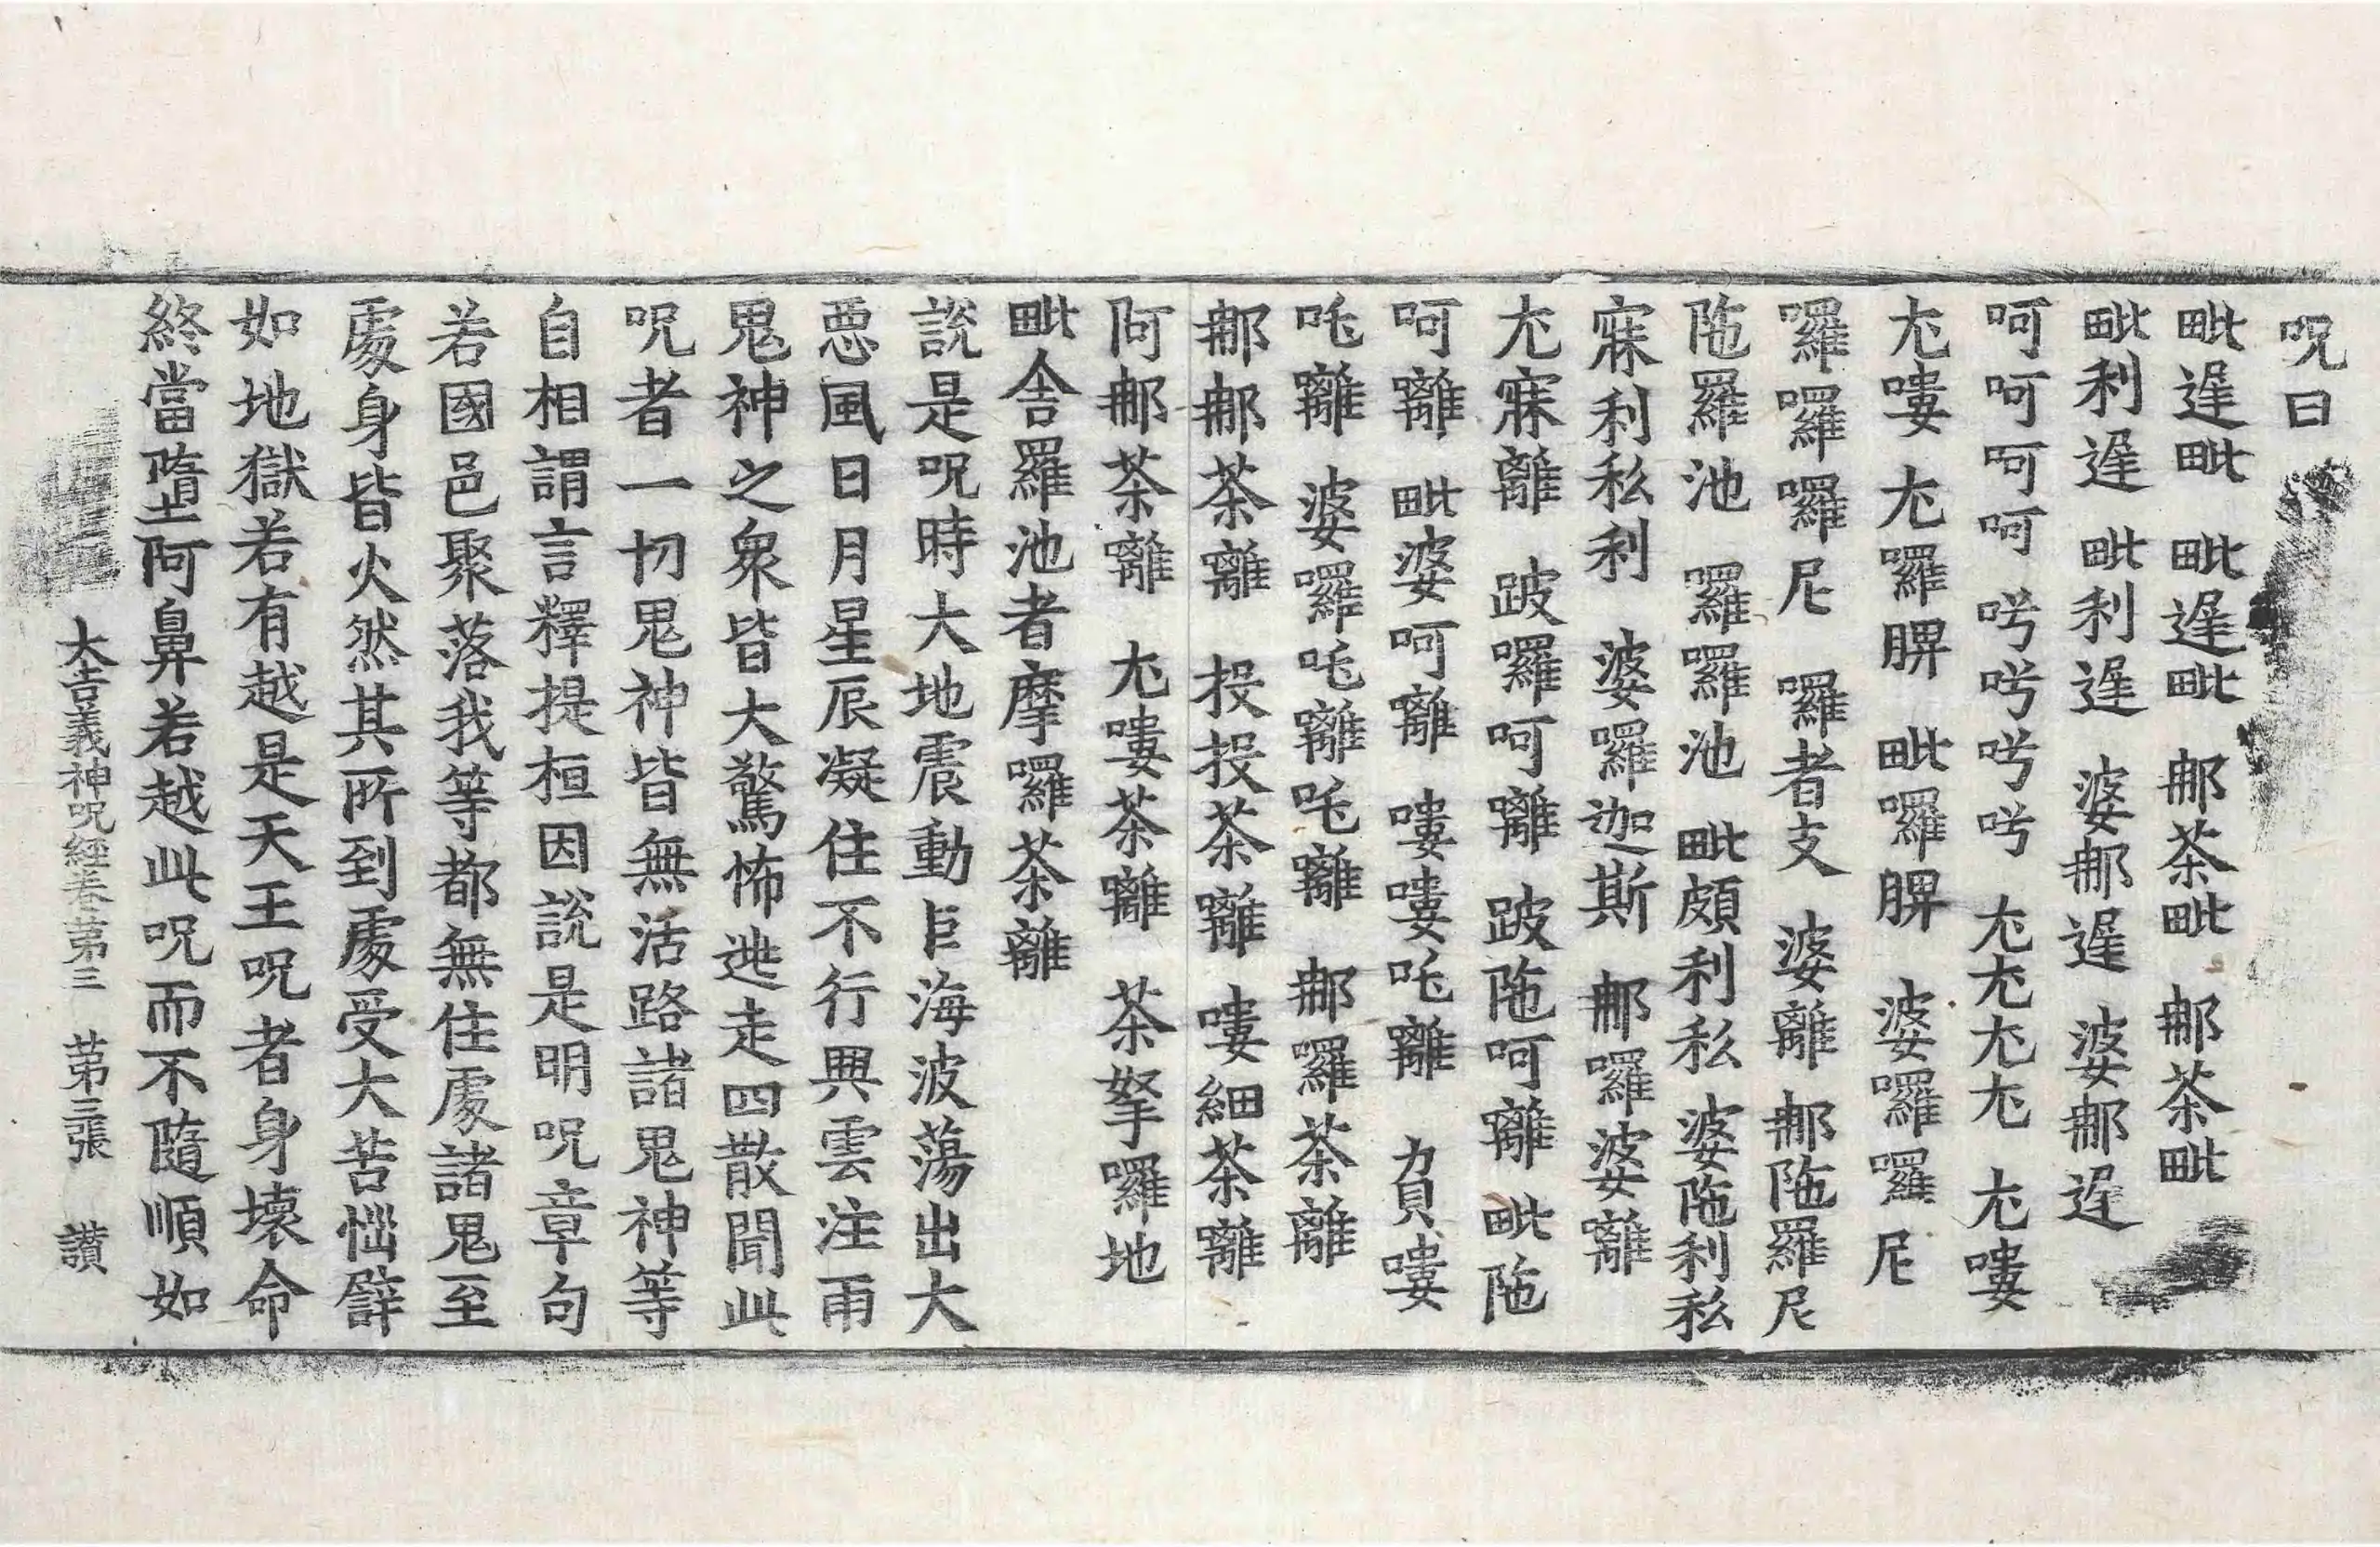 呪曰
毗遟毗　毗遟毗　那茶毗　那茶毗
毗利遟　毗利遟　婆那遟　婆那遟
呵呵呵呵　呺呺呺呺　尣尣尣尣　尣嘍
尣嘍　尣囉髀　毗囉髀　婆囉囉尼
囉囉囉尼　囉者支　婆離　那陁羅尼
陁羅池　囉囉池　毗頗利私　婆陁利私
寐利私利　婆囉迦斯　那囉婆離
尣寐離　跛囉呵離　跛陁呵離　毗陁
呵離　毗婆呵離　嘍嘍吒離　負嘍
吒離　婆囉吒離吒離　那囉茶離
那那茶離　投投茶離　嘍細茶離
阿那茶離　尣嘍茶離　茶拏囉地
毗舍羅池者摩囉茶離
說是呪時大地震動巨海波蕩出大
惡風日月星辰凝住不行興雲注雨
鬼神之衆皆大驚怖迯走四散聞此
呪者一切鬼神皆無活路諸鬼神等
自相謂言釋提桓因說是明呪章句
若國邑聚落我等都無住處諸鬼至
處身皆火然其所到處受大苦惱譬
如地獄若有越是天王呪者身壞命
終當墮阿鼻若越此呪而不隨順如
大吉義神呪經卷第三　第三張　讃